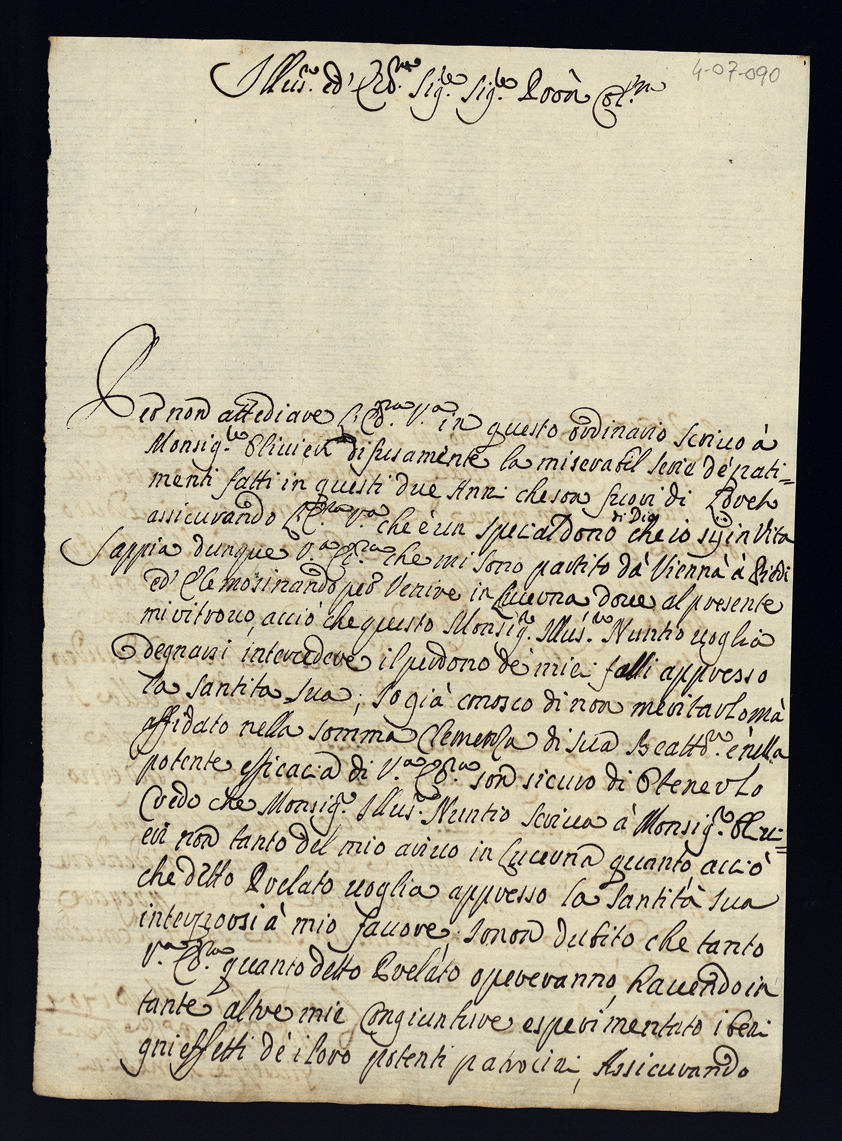 4-07-090
Illus.mo ed' Ecc.mo Sig.re Sig.re Prõn Col.mo
Per non attediare l'Ecc.za V.a in questo ordinario scrivo à
Monsig.re Olivieri difusamente la miserabil serie dé pati=
menti fatti in questi due Anni che son fuori di
assicurando l'Ecc.za V.a che è un special dono di Dio che io sij in Vita
Sappia dunque V.a Ecc.za che mi sono partito dà Vienna à Piedi
ed' Elemosinando per Venire in Lucerna dove al presente
mi ritrovo, acciò che questo Monsig.re Illus.mo Nuntio voglia
degnarsi intercedere il perdono dé miei falli appresso
la Santità sua; Io già conosco di non meritarlo mà
affidato nella somma Clemenza di sua Beattd.ne è nella
potente efficacia di V.a Ecc.za son sicuro di Otenerlo
Credo che Monsig.re Illus.mo Nuntio Scriva à Monsig.re Oliv=
eri non tanto del mio arivo in Lucerna quanto, acciò
che detto Prelato voglia appresso la Santità sua
interporsi à mio favore; Io non dubito che tanto
V.a Ecc.za quanto detto Prelato opereranno, havendo in
tante altre mie Congiunture esperimentato i beni
gni effetti dé i loro potenti patrocini, Assicurando